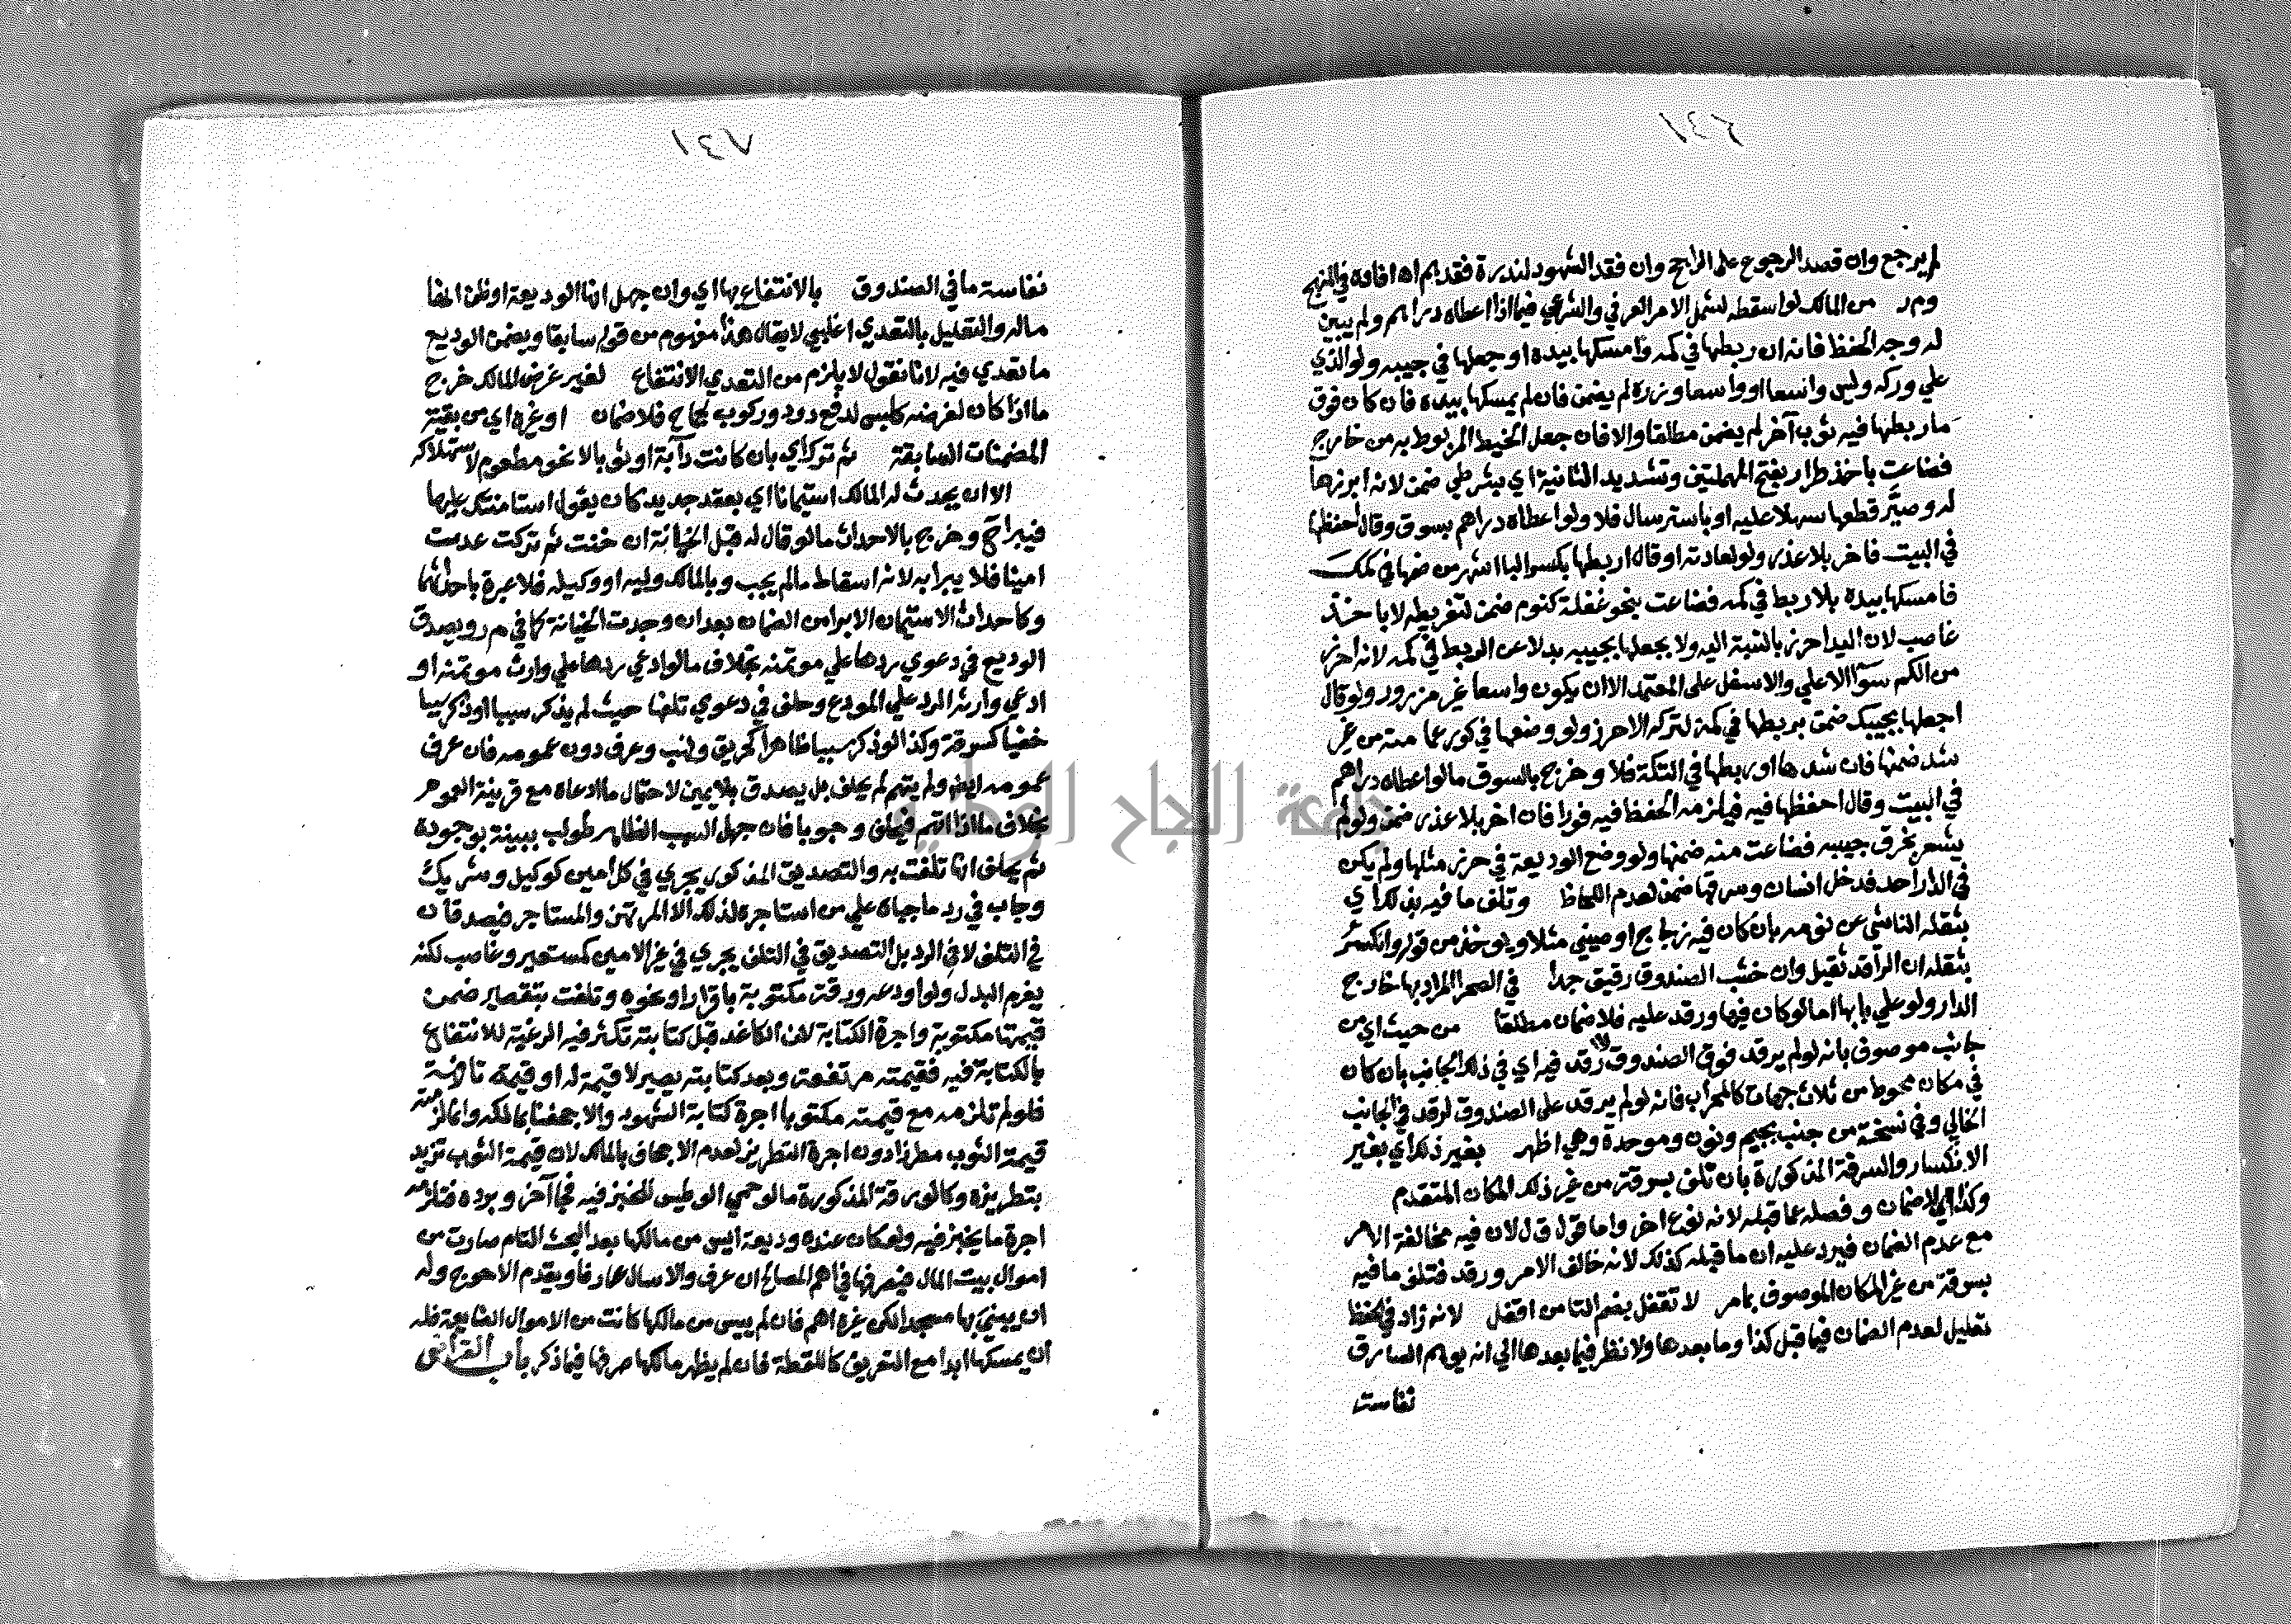 ١٤٦
لم يرجع وان قصد الرجوع على الراجح وان فقد الشهود لندرة فقدهم اه افاده في المنهج
وم ر من المالك لو اسقطه لشمل الامر العرفي والشرعي فيما اذا اعطاه دراهم ولم يبين
له وجه الحفظ فانه ان ربطها في كمه وامسكها بيده او جعلها في جيبه ولو الذي
علي وركه وليس واسعا او واسعا وزره لم يضمن فان لم يمسكها بيده فان كان فوق
ما ربطها فيه ثوب آخر لم يضمن مطلقا والا فان جعل الخيط المربوط به من خارج
فضاعت باخذ طرار بفتح المهملتين وتشديد الثانية اي بشرطي ضمن لانه ابرزها
له وصيَّر قطعها سهلا عليه او باسترسال فلا ولو اعطاه دراهم بسوق وقال احفظها
في البيت فاخر بلا عذر ولو لعادته او قال اربطها بكسر البا اشهر من ضمها في كمك
فامسكها بيده بلا ربط في كمه فضاعت بنحو غفلة كنوم ضمن لتفريطه لا باخذ
غاصب لان اليد احرز بالنسبة اليه ولا بجعلها بجيبه بدلا عن الربط في كمه لانه احرز
من الكم سوآ الاعلي والاسفل على المعتمد الا ان يكون واسعا غير مزرور ولو قال
اجعلها بجيبك ضمن بربطها في كمه لتركه الاحرز ولو وضعها في كور عمامته من غير
شد ضمنها فان شدها او ربطها في التكة فلا وخرج بالسوق ما لو اعطاه دراهم
في البيت وقال احفظها فيه فيلزمه الحفظ فيه فورا فان اخر بلا عذر ضمن ولو لم
يشعر بخرق جيبه فضاعت منه ضمنها ولو وضع الوديعة في حرز مثلها ولم يكن
في الدار احد فدخل انسان وسرقها ضمن لعدم اللحاظ وتلف ما فيه بذلك اي
بثقله الناشي عن نومه بان كان فيه زجاج او صيني مثلا ويوخذ من قوله وانكسر
بثقله ان الراقد ثقيل وان خشب الصندوق رقيق جدا في الصحرا المراد بها خارج
الدار ولو علي بابها اما لو كان فيها ورقد عليه فلا ضمان مطلقا من حيث اي من
جانب موصوف بانه لو لم يرقد فوق الصندوق لرقد فيه اي في ذلك الجانب بان كان
في مكان محوط من ثلاث جهات كالمحراب فانه لو لم يرقد على الصندوق لرقد في الجانب
الخالي وفي نسخة من جنب بجيم ونون وموحدة وهي اظهر بغير ذلك اي بغير
الانكسار والسرقة المذكورة بان تلف بسرقة من غير ذلك المكان المتقدم
وكذا اي لا ضمان وفصله عما قبله لانه نوع اخر واما قول ق ل لان فيه مخالفة الامر
مع عدم الضمان فيرد عليه ان ما قبله كذلك لانه خالف الامر ورقد فتلف ما فيه
بسرقة من غير المكان الموصوف بما مر لا تقفل بضم التا من اقفل لانه زاد في الحفظ
تعليل لعدم الضمان فيما قبل كذا وما بعدها ولا نظر فيما بعدها الي انه يوهم السارق
نفاست
١٤٧
نفاسة ما في الصندوق بالانتفاع بها اي وان جهل انها الوديعة او ظن انها
ماله والتعليل بالتعدي اغلبي لا يقال هذا مفهوم من قوله سابقا ويضمن الوديع
ما تعدي فيه لانا نقول لا يلزم من التعدي الانتفاع لغير غرض المالك خرج
ما اذا كان لغرضه كلبس لدفع دود وركوب لجماح فلا ضمان او غيره اي من بقية
المضمنات السابقة ثم ترك اي بان كانت دآبة او ثوبا لا نحو مطعوم لاستهلاكه
الا ان يحدث له المالك استيمانا اي بعقد جديد كان يقول استامنتك عليها
فيبرا ح وخرج بالاحداث ما لو قال له قبل الخيانة ان خنت ثم تركت عدت
امينا فلا يبرا به لانه اسقاط ما لم يجب وبالمالك وليه او وكيله فلا عبرة باحداثهما
وكاحداث الاستيمان الابرا من الضمان بعد ان وجدت الخيانة كما في م ر ويصدق
الوديع في دعوي ردها علي موتمنه بخلاف ما لو ادعي ردها علي وارث موتمنه او
ادعي وارثه الرد علي المودع وحلف في دعوي تلفها حيث لم يذكر سببا او ذكر سببا
خفيا كسرقة وكذا لو ذكر سببا ظاهرا كحريق ونهب وعرف دون عمومه فان عرف
عمومه ايضا ولم يتهم لم يحلف بل يصدق بلا يمين لاحتمال ما ادعاه مع قرينة العموم
بخلاف ما اذا اتهم فيحلف وجوبا فان جهل السبب الظاهر طولب ببينة بوجوده
ثم يحلف انها تلفت به والتصديق المذكور يجري في كل امين كوكيل وشريك
وجاب في رد ما جباه علي من استاجره لذلك الا المرتهن والمستاجر فيصدقان
في التلف لا في الرد بل التصديق في التلف يجري في غير الامين كمستعير وغاصب لكنه
يغرم البدل ولو اودعه ورقة مكتوبة باقرار او نحوه وتلفت بتقصير ضمن
قيمتها مكتوبة واجرة الكتابة لان الكاغد قبل كتابته تكثر فيه الرغبة للانتفاع
بالكتابة فيه فقيمته مرتفعة وبعد كتابته يصير لا قيمة له او قيمة تافهة
فلو لم تلزمه مع قيمته مكتوبا اجرة كتابة الشهود والا جحفنا بمالكه وانما لزمته
قيمة الثوب مطرزا دون اجرة التطريز لعدم الاجحاف بالمالك لان قيمة الثوب تزيد
بتطريزه وكالورقة المذكورة ما لو حمي الوطيس للخبز فيه فجا آخر وبرده فتلزمه
اجرة ما يخبز فيه ولو كان عنده وديعة ايس من مالكها بعد البحث التام صارت من
اموال بيت المال فيصرفها في اهم المصالح ان عرف والا سال عارفا ويقدم الاحوج وله
ان يبني بها مسجدا لكن غيره اهم فان لم ييس من مالكها كانت من الاموال الضايعة فله
ان يمسكها ابدا مع التعريف كاللقطة فان لم يظهر مالكها صرفها فيما ذكر باب الفرائض
جامعة النجاح الوطنية